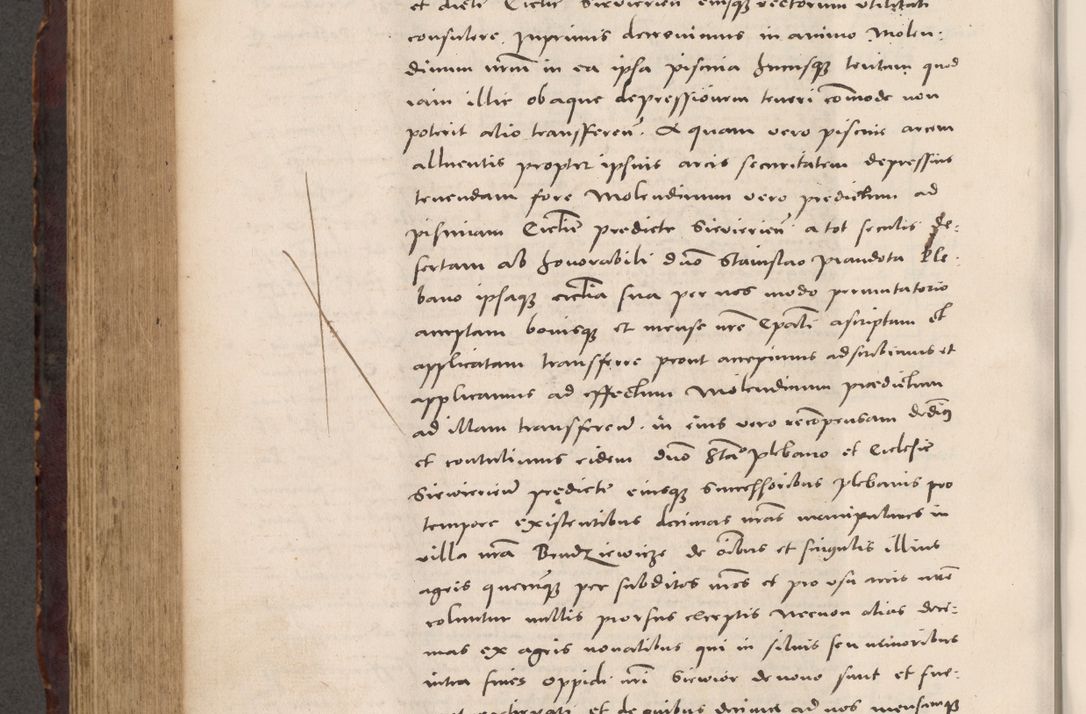 et dicte Ecclesie Sievierien eiusq rectorum utilitati
consulere. Inprimis decrevimus in animo Molen-
dinum nrm in ea ipsa piscina hucusq tentum quod
iam illic ob aque depressionem teneri comode non
poterit alio transferen. Et quam vero piscine arcem
alluentis propter ipsius arcis securitatem depressius
tenendam fore Molendinum vero predictum ad
piscinam Ecclie predicte Sievierien a tot seculis de-
sertam ab honorabili dno Stanislao Piandota Ple-
bano ipsaq ecclia sua per nos modo permutatorio
acceptam bonisq et mense nre Epali ascriptam et
applicatam transferre prout accepimus adscribimus et
applicamus ad effectum Molendinum predictum
ad illam transferend. in eius vero recompensam dedimus
et contulimus eidem dno Stao plebano et Ecclesie
Sievierien predicte eiusq Successoribus plebanis pro
tempore existentibus decimas nras manipulares in
villa nra Bendziewicze de oibus et singulis illius
agris quemcuq per subditos nros et pro usu arcis nre
coluntur nullis prorsus exceptis necnon alias deci-
mas ex agris novalibus qui in silvis seu nemoribus
intra fines oppidi nri Siewior de novo sunt et fue-
et de quibus decime ad nos mensamq